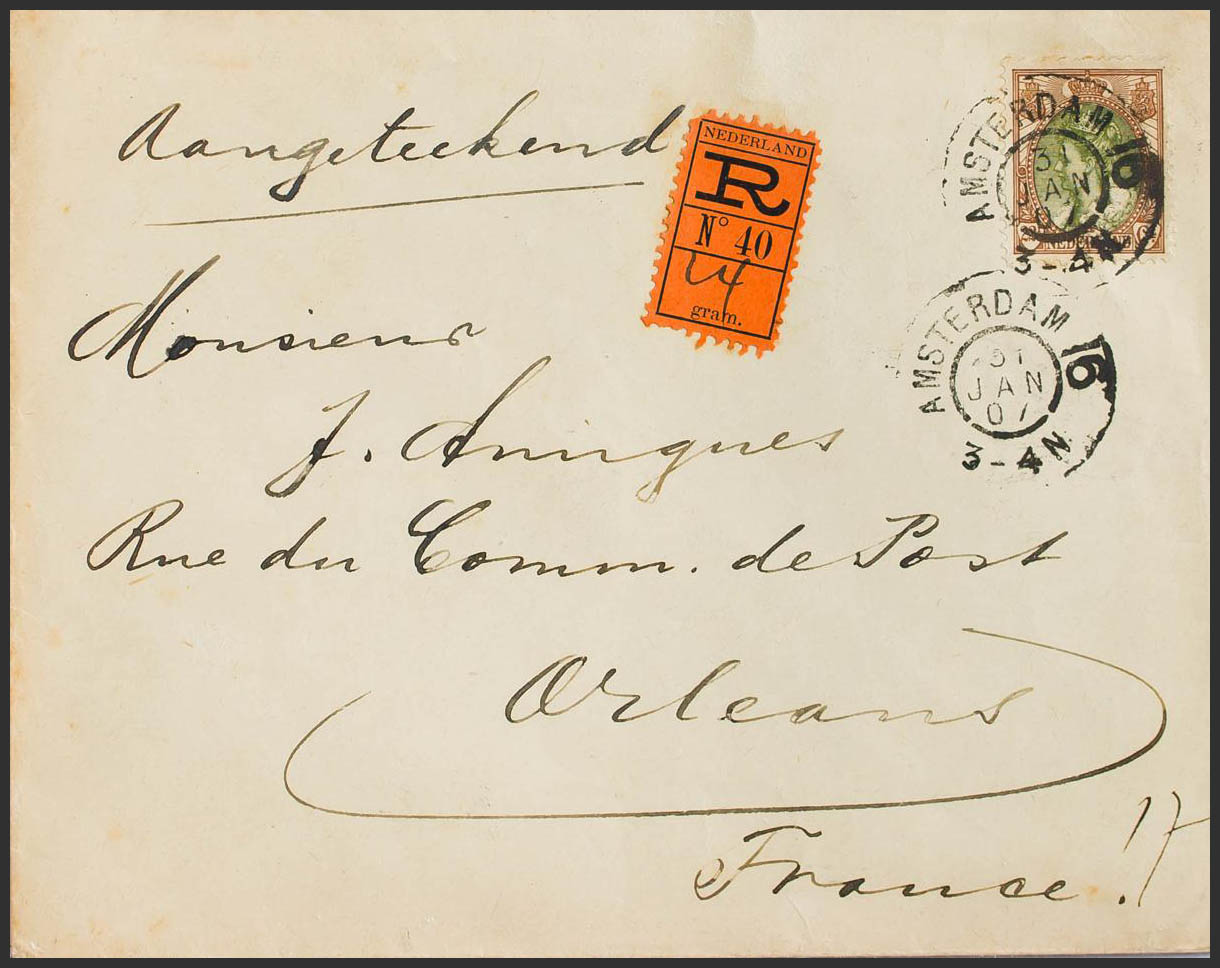 Aangeteekend
NEDERLAND
R
N° 40
14
gram.
AMSTERDAM 16
31
JAN
3-4N
NEDERLAND
AMSTERDAM 16
31
JAN
07
3-4N
Monsieur
J.
Rue du Comm. de Post
Orleans
France!
17